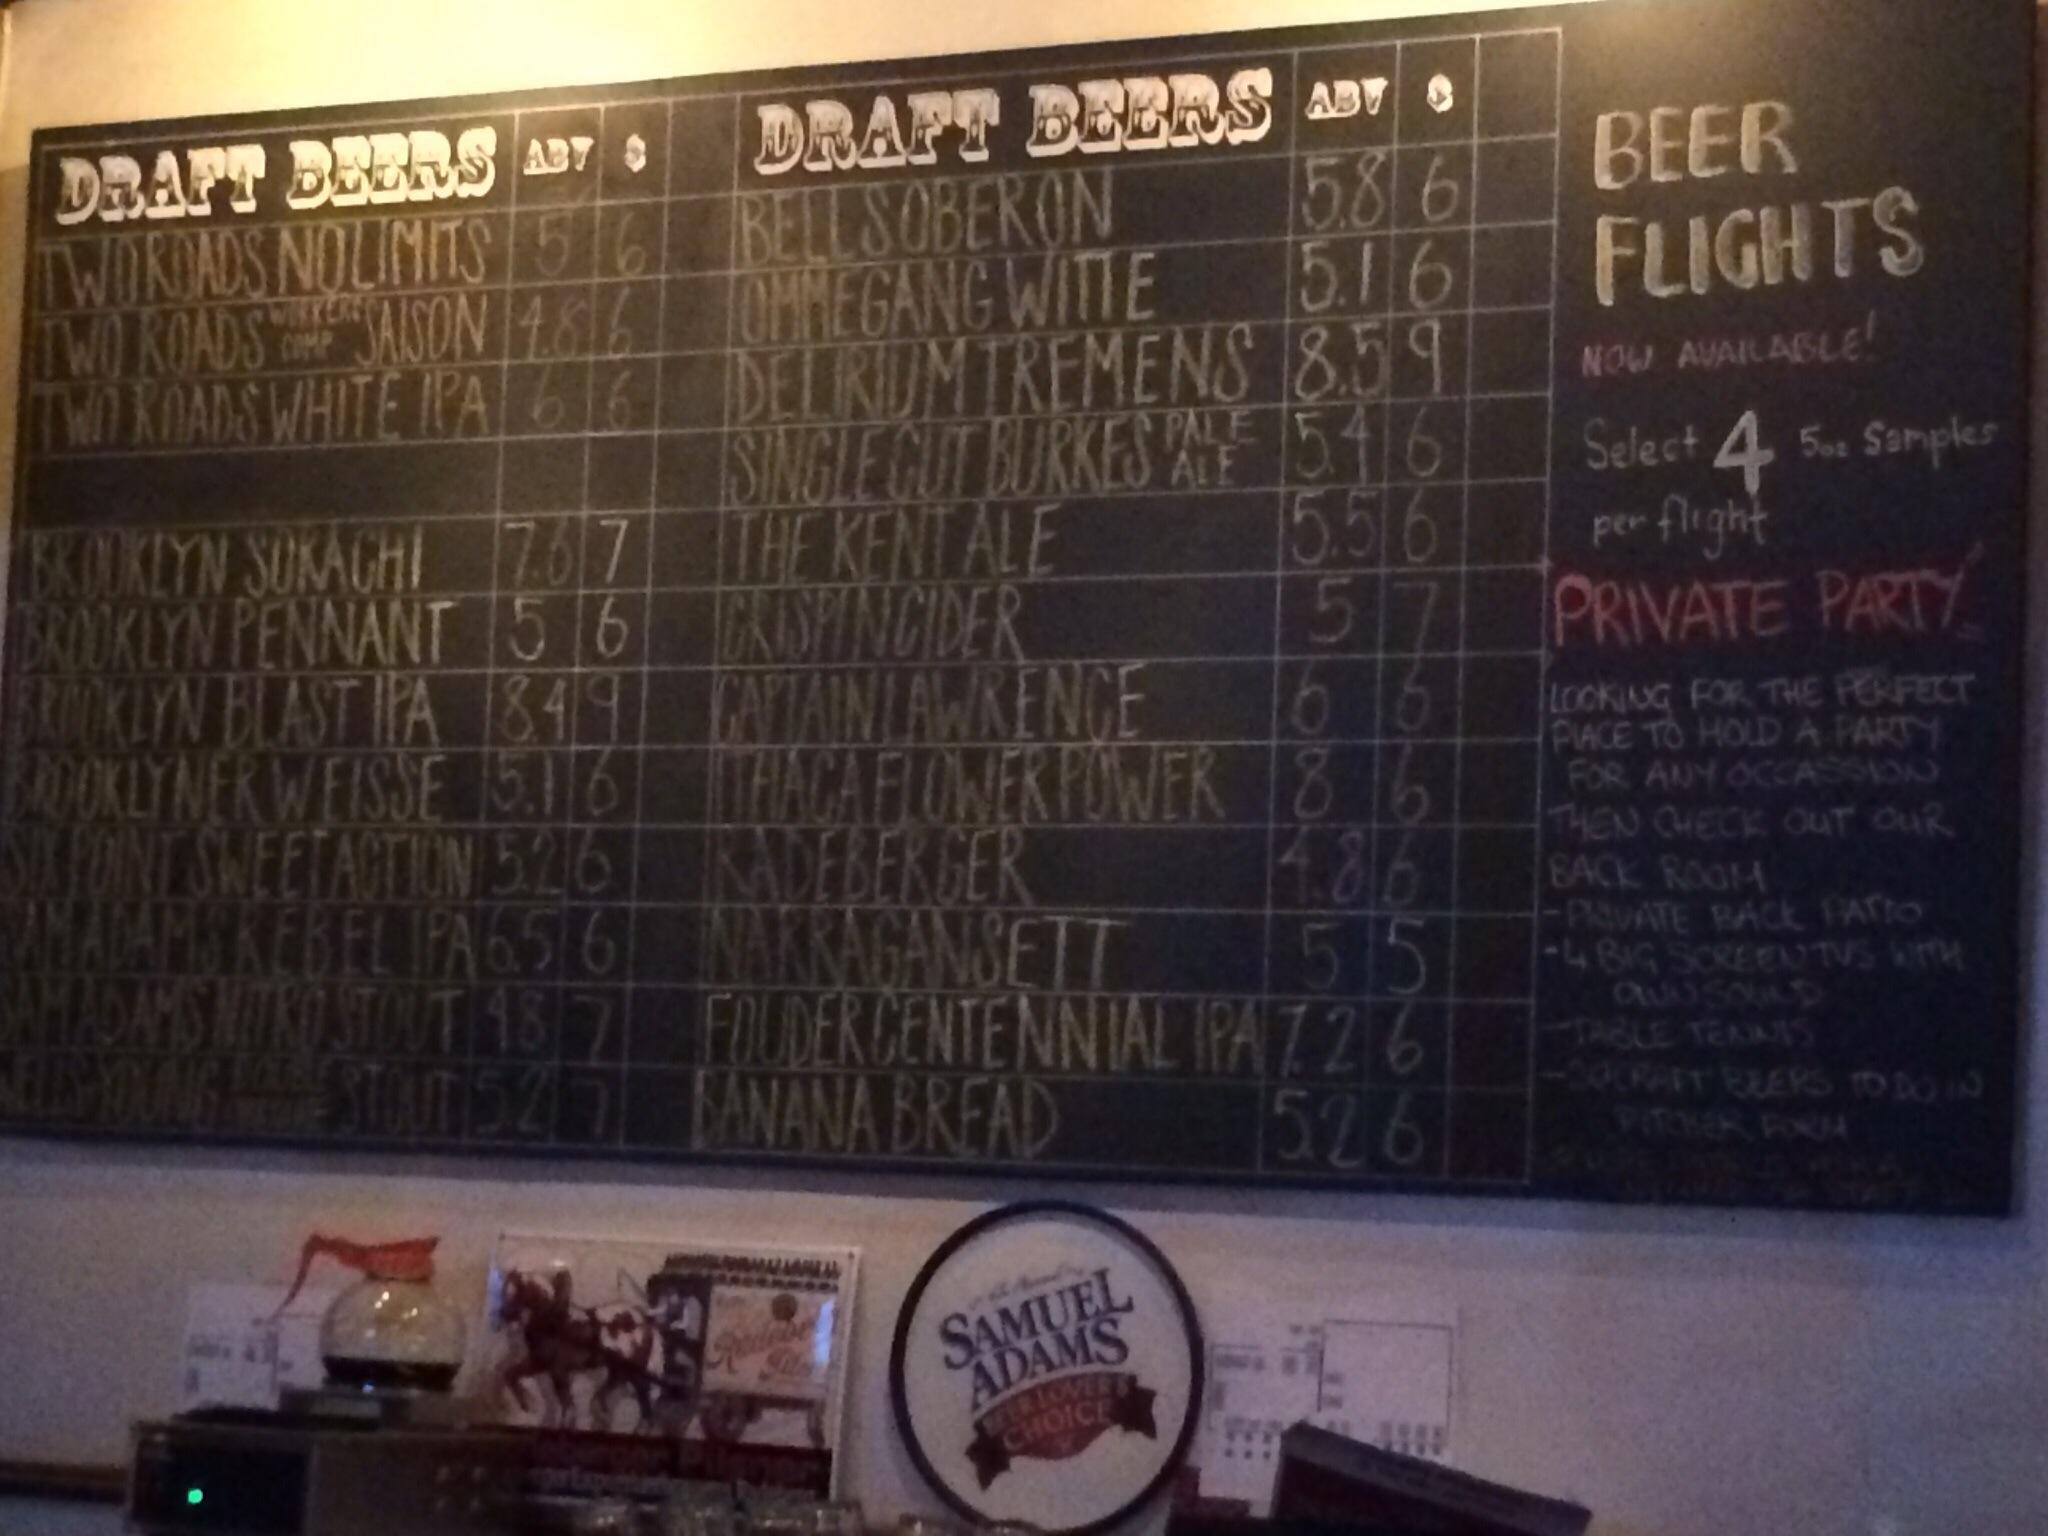 DRAFT BEERS ABV $
TWO ROADS NO LIMITS 5 6
TWO ROADS WORKERS COMP SAISON 4.8 6
TWO ROADS WHITE IPA 6 6
BROOKLYN SORACHI 7.6 7
BROOKLYN PENNANT 5 6
BROOKLYN BLAST IPA 8.4 9
BROOKLYNER WEISSE 5.1 6
SIXPOINT SWEET ACTION 5.2 6
SAM ADAMS REBEL IPA 6.5 6
SAM ADAMS NITRO STOUT 4.8 7
STOUT 5.2 7
DRAFT BEERS ABV $
BELLS OBERON 5.8 6
OMMEGANG WITTE 5.1 6
DELIRIUM TREMENS 8.5 9
SINGLE CUT BURKES PALE ALE 5.4 6
THE KENT ALE 5.5 6
CRISPIN CIDER 5 7
CAPTAIN LAWRENCE 6 6
ITHACA FLOWER POWER 8 6
RADEBERGER 4.8 6
NARRAGANSETT 5 5
FOUDER CENTENNIAL IPA 7.2 6
BANANA BREAD 5.2 6
BEER
FLIGHTS
NOW AVAILABLE!
Select 4 5oz Samples
per flight
PRIVATE PARTY
LOOKING FOR THE PERFECT
PLACE TO HOLD A PARTY
FOR ANY OCCASSION
THEN CHECK OUT OUR
BACK ROOM
- PRIVATE BACK PATIO
- 4 BIG SCREEN TVS WITH
OWN SOUND
- TABLE TENNIS
CRAFT BEERS TO DO IN
PITCHER FORM
SAMUEL
ADAMS
BEER LOVER'S
CHOICE
Pilsner